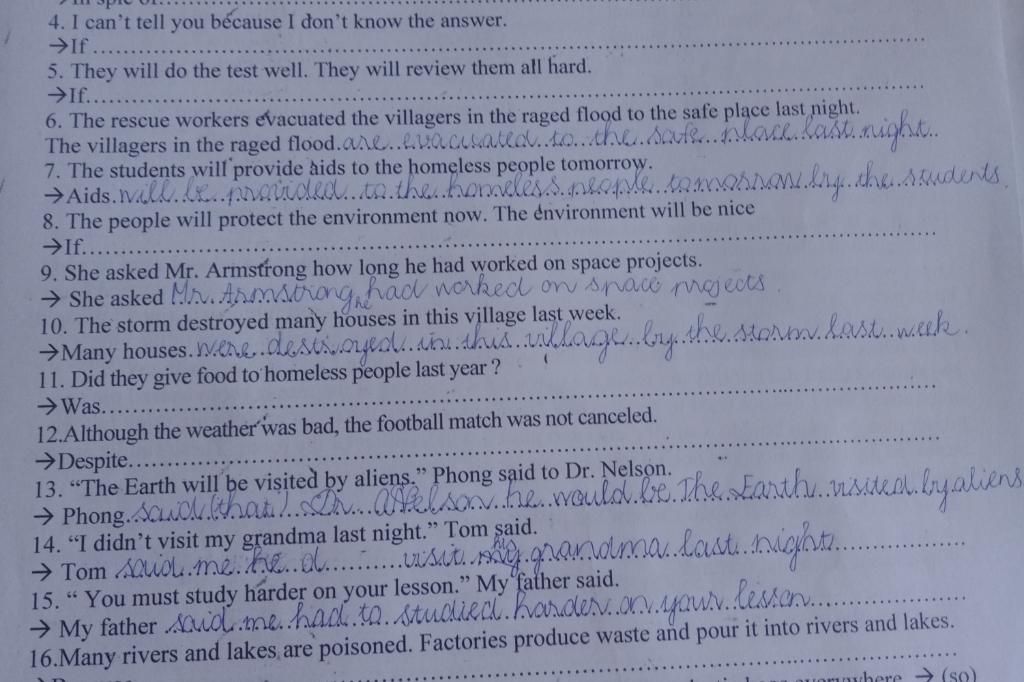 4. I can't tell you because I don't know the answer.
→If........................................................
5. They will do the test well. They will review them all hard.
→If........................................................
6. The rescue workers evacuated the villagers in the raged flood to the safe place last night.
The villagers in the raged flood are evacuated to the safe place last night.
7. The students will provide aids to the homeless people tomorrow.
→Aids will be provided to the homeless people tomorrow by the students.
8. The people will protect the environment now. The environment will be nice
→If........................................................
9. She asked Mr. Armstrong how long he had worked on space projects.
→ She asked Mr. Armstrong he had worked on space projects.
10. The storm destroyed many houses in this village last week.
→Many houses were destroyed in this village by the storm last week.
11. Did they give food to homeless people last year ?
→Was........................................................
12.Although the weather was bad, the football match was not canceled.
→Despite........................................................
13. “The Earth will be visited by aliens.” Phong said to Dr. Nelson.
→ Phong said (that) Dr. Nelson he would be The Earth visited by aliens
14. “I didn't visit my grandma last night.” Tom said.
→ Tom said me he d.......... visit his grandma last night
15. “ You must study harder on your lesson.” My father said.
→ My father said me had to studied harder on your lesson
16.Many rivers and lakes are poisoned. Factories produce waste and pour it into rivers and lakes.
→ (so)